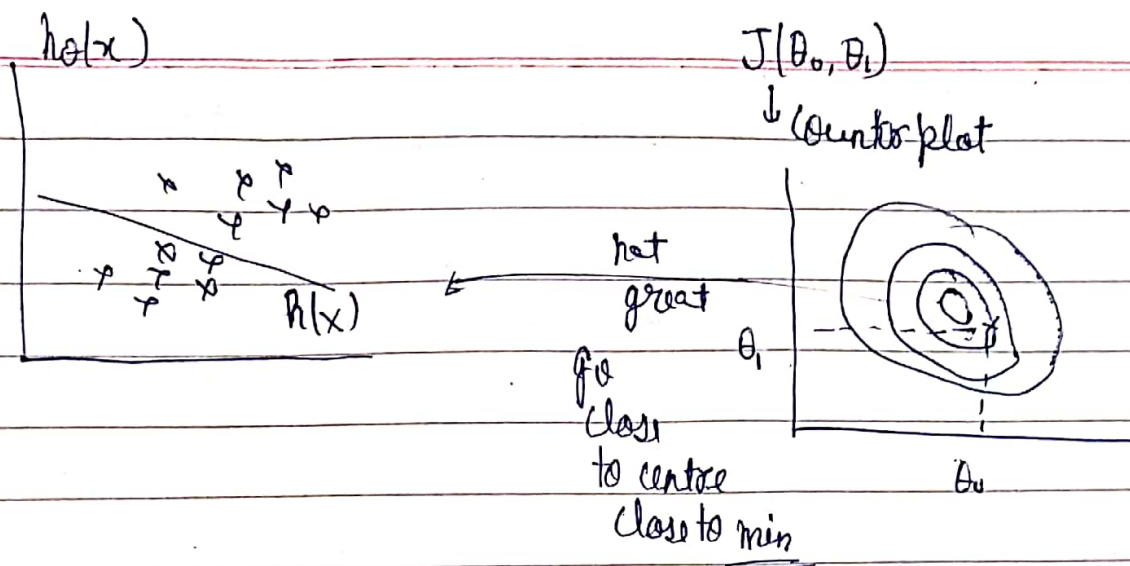 hθ(x)
J(θ₀, θ₁)
↓ Countor plot
not
great
h(x)
θ₁
go
close
to centre
close to min
θ₀